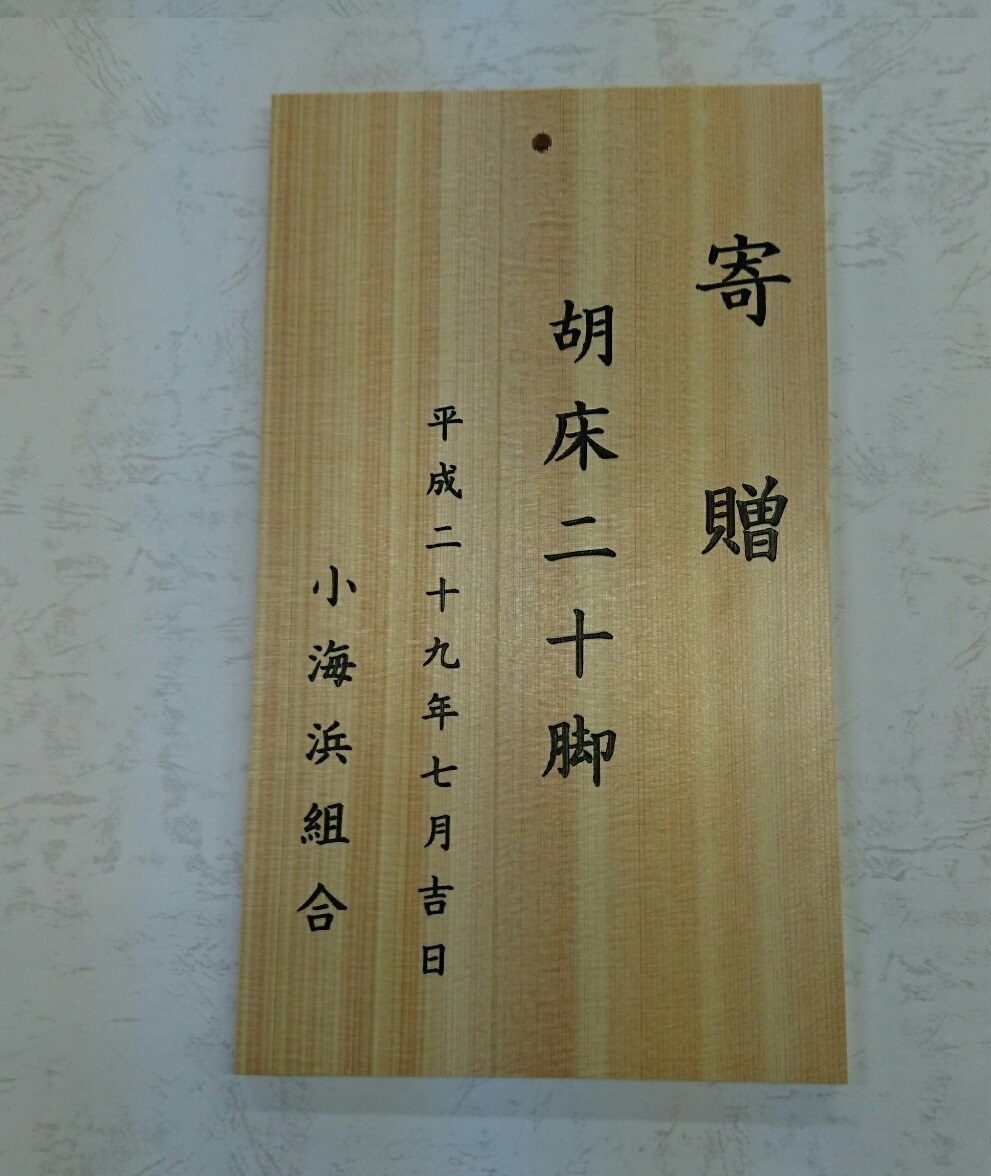 寄贈
胡床二十脚
平成二十九年七月吉日
小海浜組合